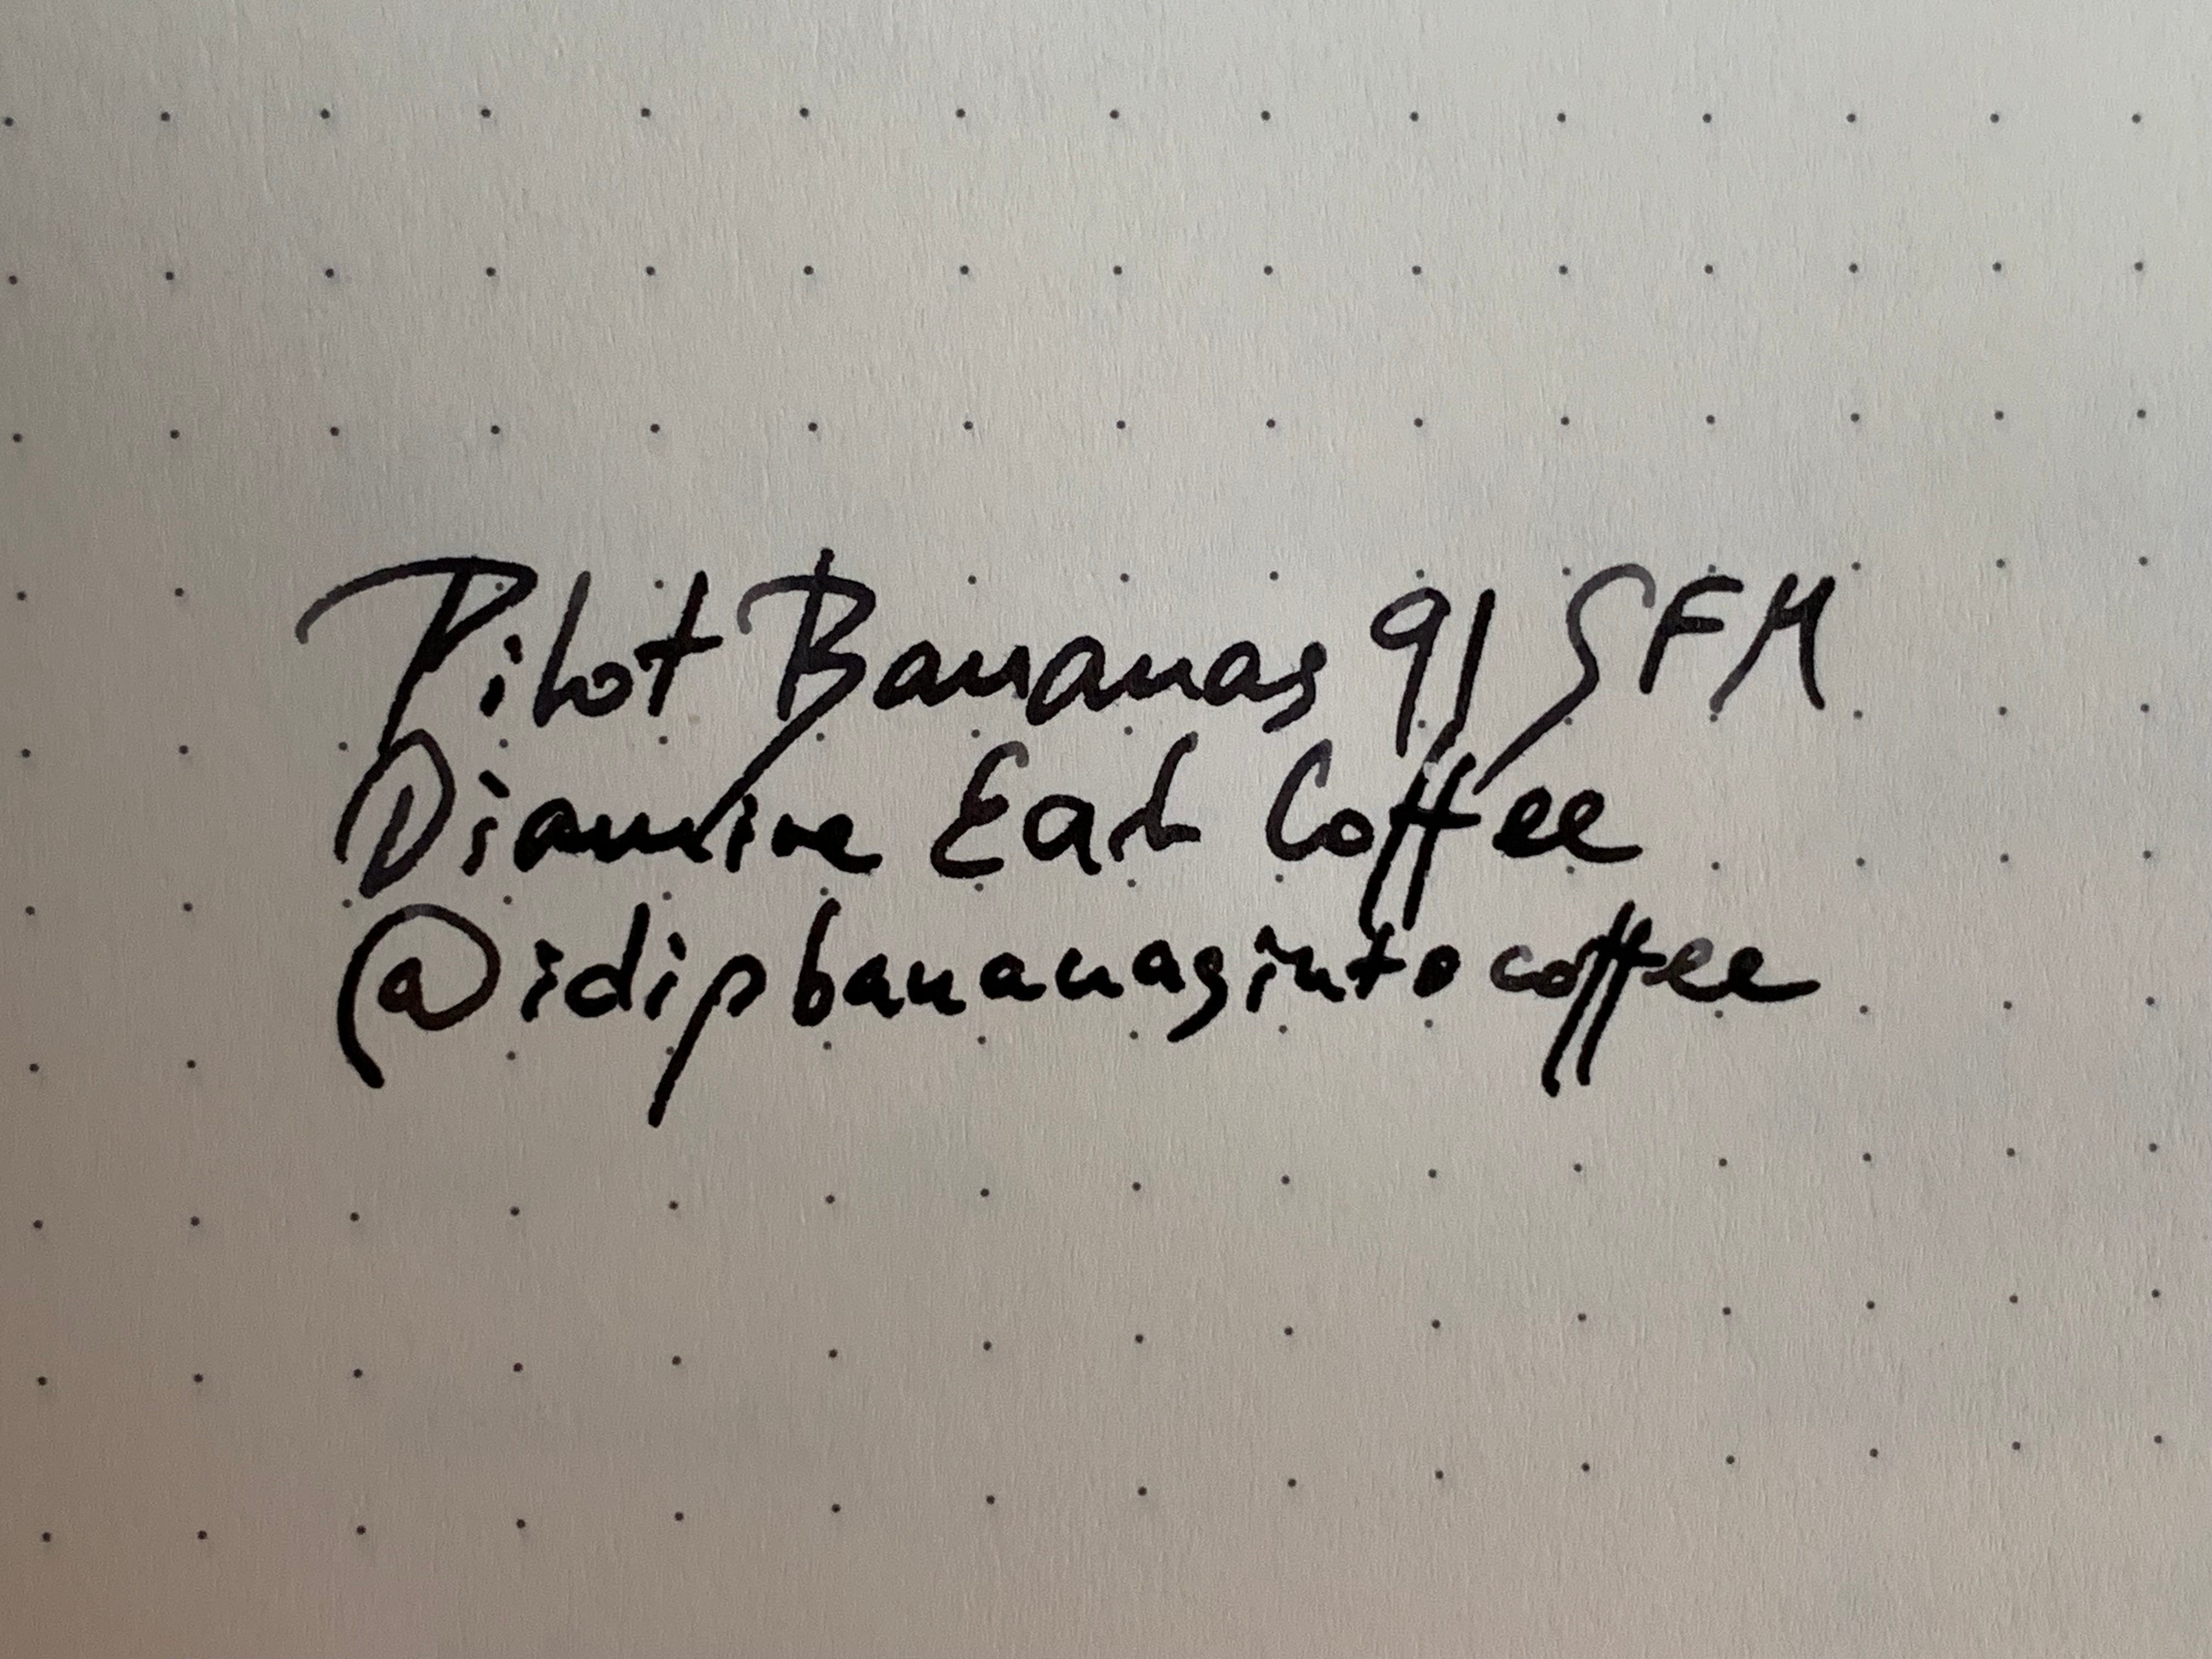 Pilot Bananas 91 SFM
Diamine Earl Coffee
@idipbananasintocoffee